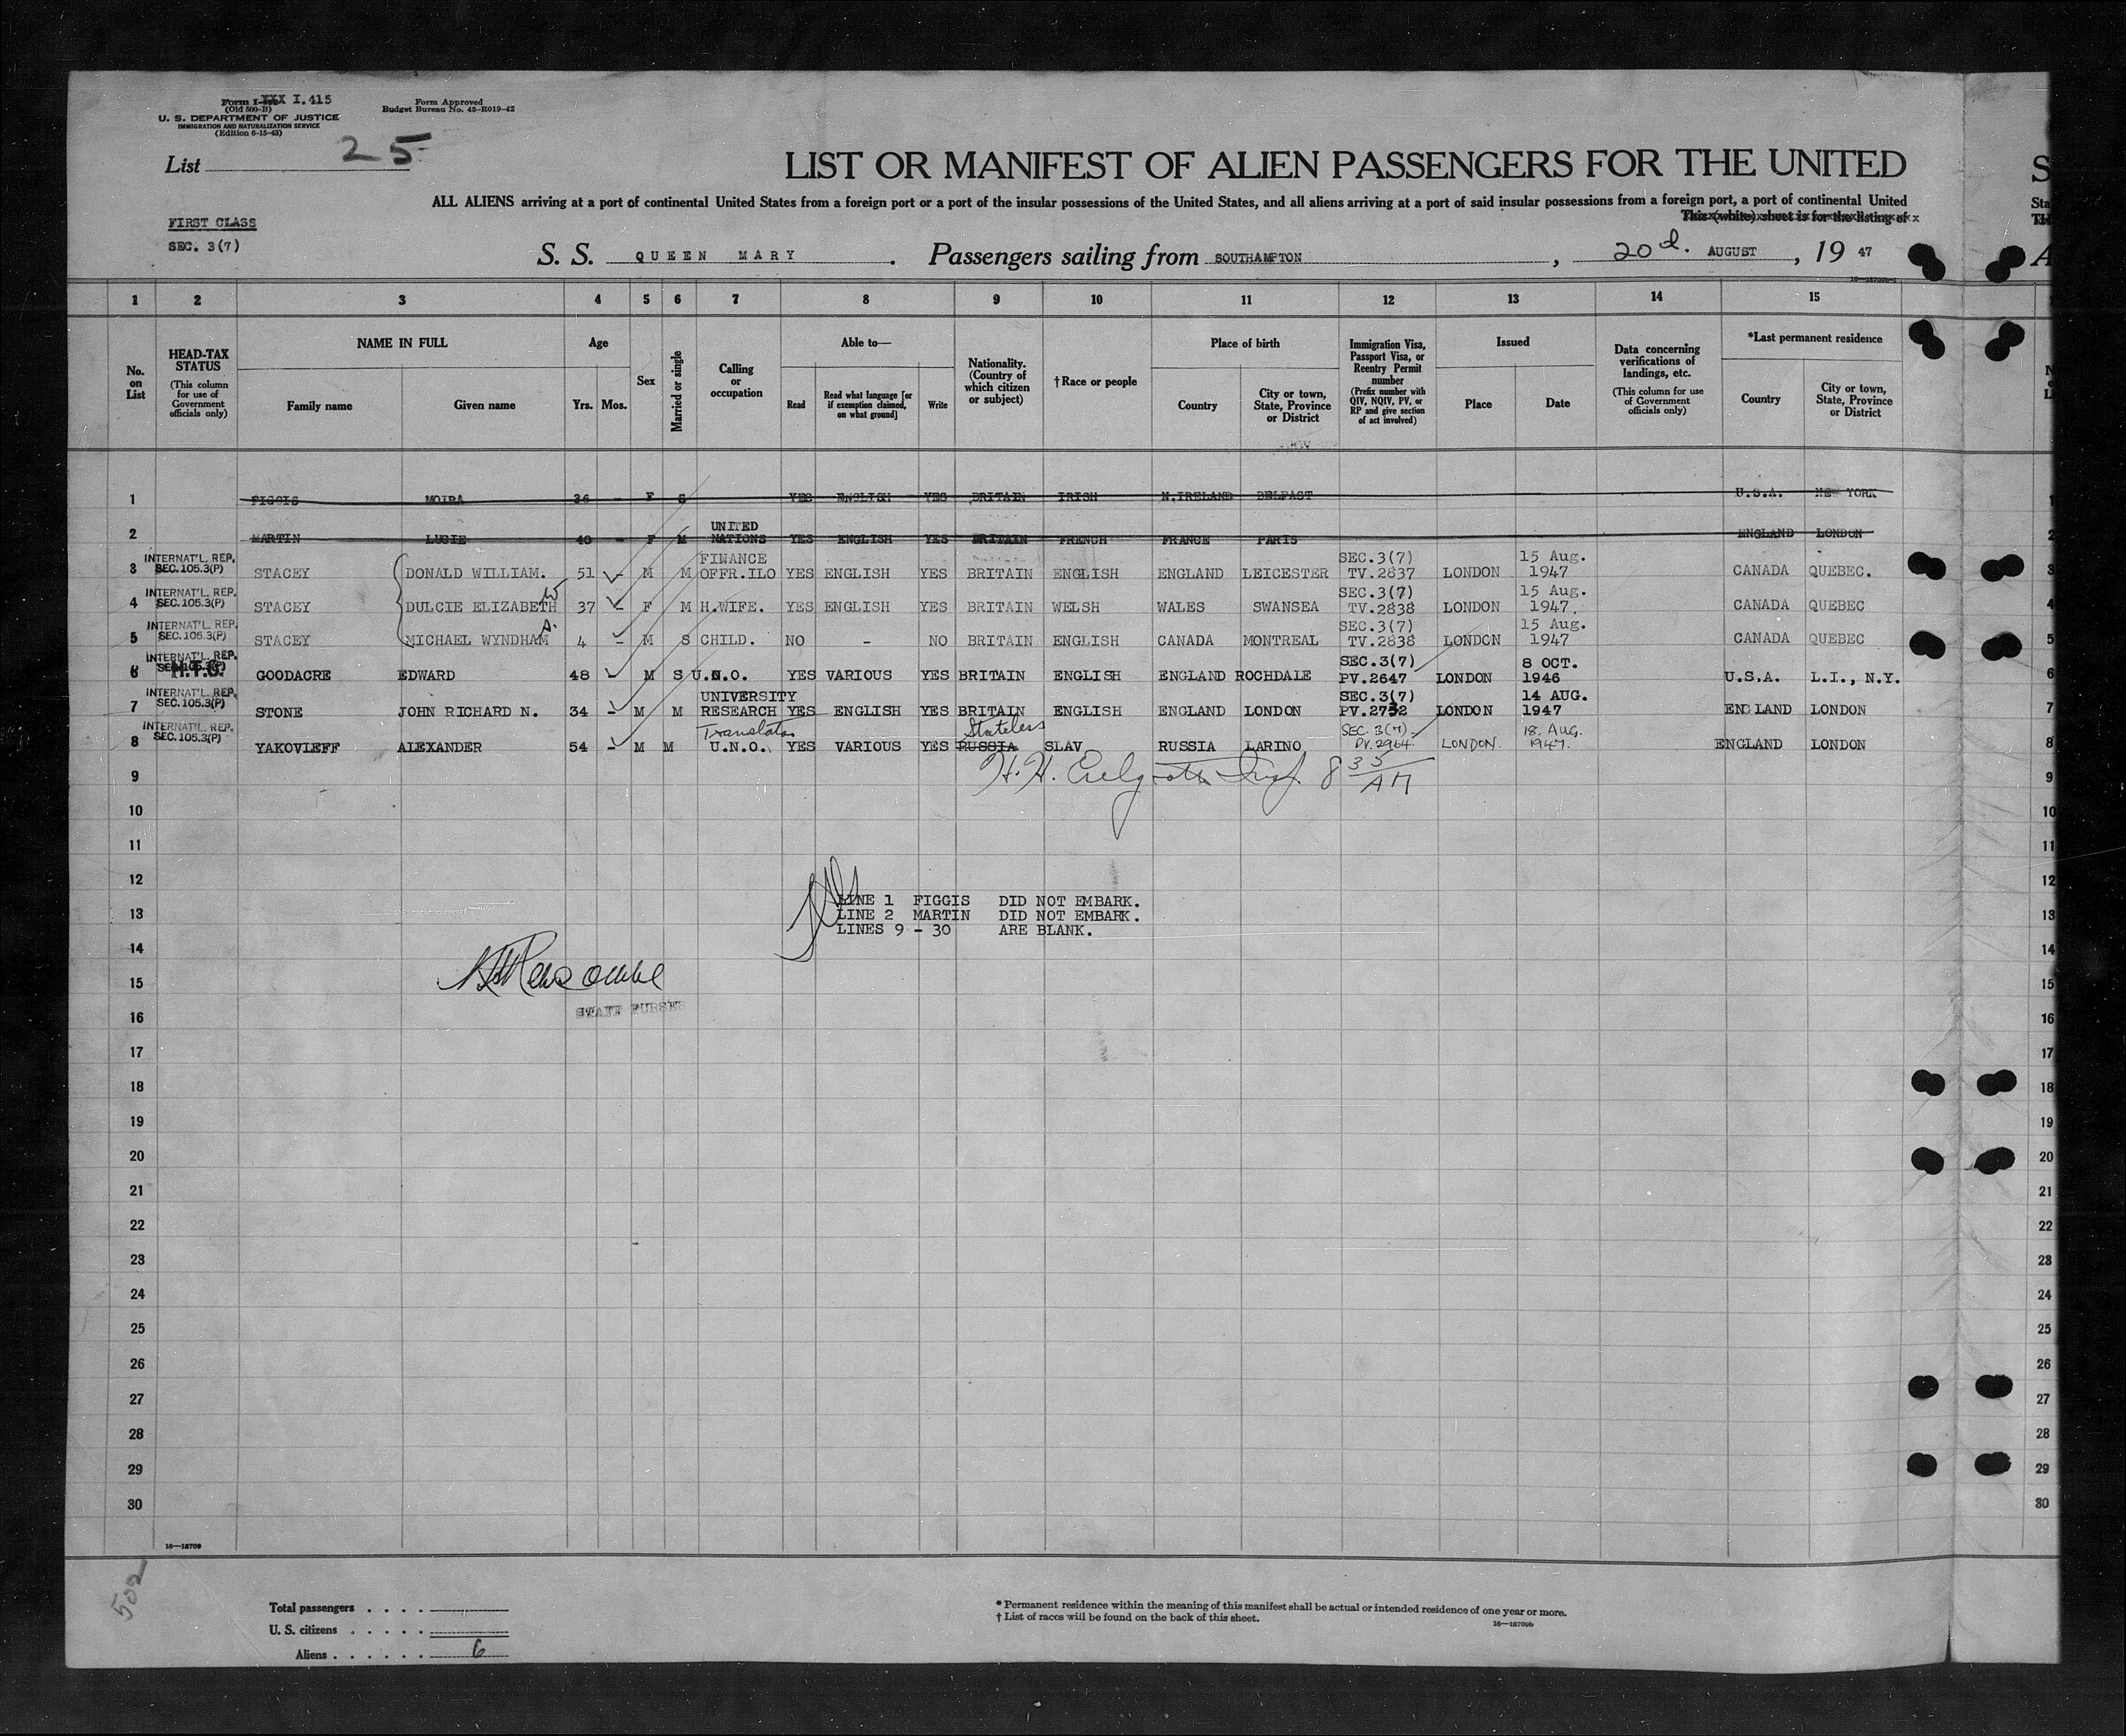 Form I-XXX I.415
(Old 500-B)
U. S. DEPARTMENT OF JUSTICE
IMMIGRATION AND NATURALIZATION SERVICE
(Edition 6-15-43)
Form Approved
Budget Bureau No. 43-R019-42
List 25
LIST OR MANIFEST OF ALIEN PASSENGERS FOR THE UNITED
S
ALL ALIENS arriving at a port of continental United States from a foreign port or a port of the insular possessions of the United States, and all aliens arriving at a port of said insular possessions from a foreign port, a port of continental United
Sta
This (white) sheet is for the listing of
FIRST CLASS
SEC. 3(7)
S. S. QUEEN MARY. Passengers sailing from SOUTHAMPTON, 20d. AUGUST, 19 47
A
1 2 3 4 5 6 7 8 9 10 11 12 13 14 15
No. on List
HEAD-TAX STATUS
(This column for use of Government officials only)
NAME IN FULL
Family name
Given name
Age
Yrs. Mos.
Sex
Married or single
Calling or occupation
Able to—
Read
Read what language [or if exemption claimed, on what ground]
Write
Nationality. (Country of which citizen or subject)
†Race or people
Place of birth
Country
City or town, State, Province or District
Immigration Visa, Passport Visa, or Reentry Permit number
(Prefix number with QIV, NQIV, PV, or RP and give section of act involved)
Issued
Place
Date
Data concerning verifications of landings, etc.
(This column for use of Government officials only)
*Last permanent residence
Country
City or town, State, Province or District
1 FIGGIS MOIRA 36 - F S YES ENGLISH YES BRITAIN IRISH N.IRELAND BELFAST U.S.A. NEW YORK 1
2 MARTIN LUCIE 40 - F M UNITED NATIONS YES ENGLISH YES BRITAIN FRENCH FRANCE PARIS ENGLAND LONDON 2
3 INTERNAT'L. REP. SEC.105.3(P) STACEY DONALD WILLIAM. 51 - M M FINANCE OFFR.ILO YES ENGLISH YES BRITAIN ENGLISH ENGLAND LEICESTER SEC.3(7) TV.2837 LONDON 15 Aug. 1947 CANADA QUEBEC. 3
4 INTERNAT'L. REP. SEC.105.3(P) STACEY DULCIE ELIZABETH W 37 - F M H.WIFE. YES ENGLISH YES BRITAIN WELSH WALES SWANSEA SEC.3(7) TV.2838 LONDON 15 Aug. 1947. CANADA QUEBEC 4
5 INTERNAT'L. REP. SEC.105.3(P) STACEY MICHAEL WYNDHAM A. 4 - M S CHILD. NO - NO BRITAIN ENGLISH CANADA MONTREAL SEC.3(7) TV.2838 LONDON 15 Aug. 1947 CANADA QUEBEC 5
6 INTERNAT'L. REP. SEC.105.3(P) H.T.G. GOODACRE EDWARD 48 - M S U.N.O. YES VARIOUS YES BRITAIN ENGLISH ENGLAND ROCHDALE SEC.3(7) PV.2647 LONDON 8 OCT. 1946 U.S.A. L.I., N.Y. 6
7 INTERNAT'L. REP. SEC.105.3(P) STONE JOHN RICHARD N. 34 - M M UNIVERSITY RESEARCH YES ENGLISH YES BRITAIN ENGLISH ENGLAND LONDON SEC.3(7) PV.2732 LONDON 14 AUG. 1947 ENGLAND LONDON 7
8 INTERNAT'L. REP. SEC.105.3(P) YAKOVLEFF ALEXANDER 54 - M M Translator U.N.O. YES VARIOUS YES Stateless RUSSIA SLAV RUSSIA LARINO SEC. 3(7). PV.2964. LONDON. 18, AUG. 1947. ENGLAND LONDON 8
9 8 35 AM 9
10 10
11 11
12 12
LINE 1 FIGGIS DID NOT EMBARK.
13 LINE 2 MARTIN DID NOT EMBARK. 13
LINES 9 - 30 ARE BLANK.
14 14
15 15
STAFF PURSER
16 16
17 17
18 18
19 19
20 20
21 21
22 22
23 23
24 24
25 25
26 26
27 27
28 28
29 29
30 30
16—18709
502
Total passengers . . . .
U. S. citizens . . . . .
Aliens . . . . . . 6
* Permanent residence within the meaning of this manifest shall be actual or intended residence of one year or more.
† List of races will be found on the back of this sheet.
16—18709b